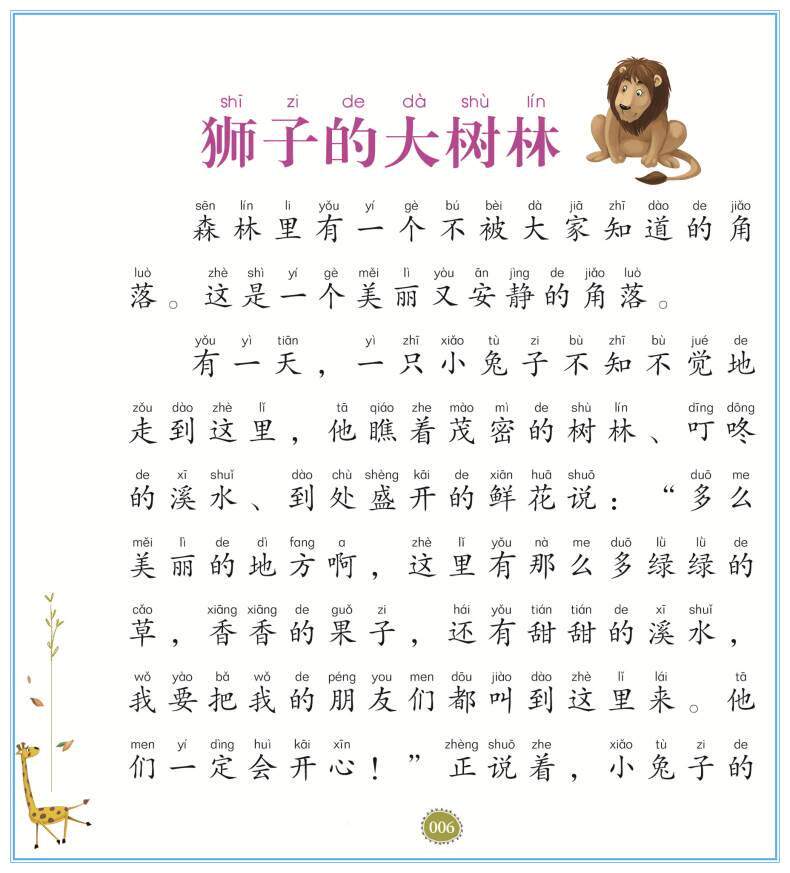 shī zi de dà shù lín
狮子的大树林
sēn lín li yǒu yí gè bú bèi dà jiā zhī dào de jiǎo
森林里有一个不被大家知道的角
luò zhè shì yí gè měi lì yòu ān jìng de jiǎo luò
落。这是一个美丽又安静的角落。
yǒu yì tiān yì zhī xiǎo tù zi bù zhī bù jué de
有一天，一只小兔子不知不觉地
zǒu dào zhè lǐ tā qiáo zhe mào mì de shù lín dīng dōng
走到这里，他瞧着茂密的树林、叮咚
de xī shuǐ dào chù shèng kāi de xiān huā shuō duō me
的溪水、到处盛开的鲜花说：“多么
měi lì de dì fang a zhè lǐ yǒu nà me duō lǜ lǜ de
美丽的地方啊，这里有那么多绿绿的
cǎo xiāng xiāng de guǒ zi hái yǒu tián tián de xī shuǐ
草，香香的果子，还有甜甜的溪水，
wǒ yào bǎ wǒ de péng you men dōu jiào dào zhè lǐ lái tā
我要把我的朋友们都叫到这里来。他
men yí dìng huì kāi xīn zhèng shuō zhe xiǎo tù zi de
们一定会开心！”正说着，小兔子的
006